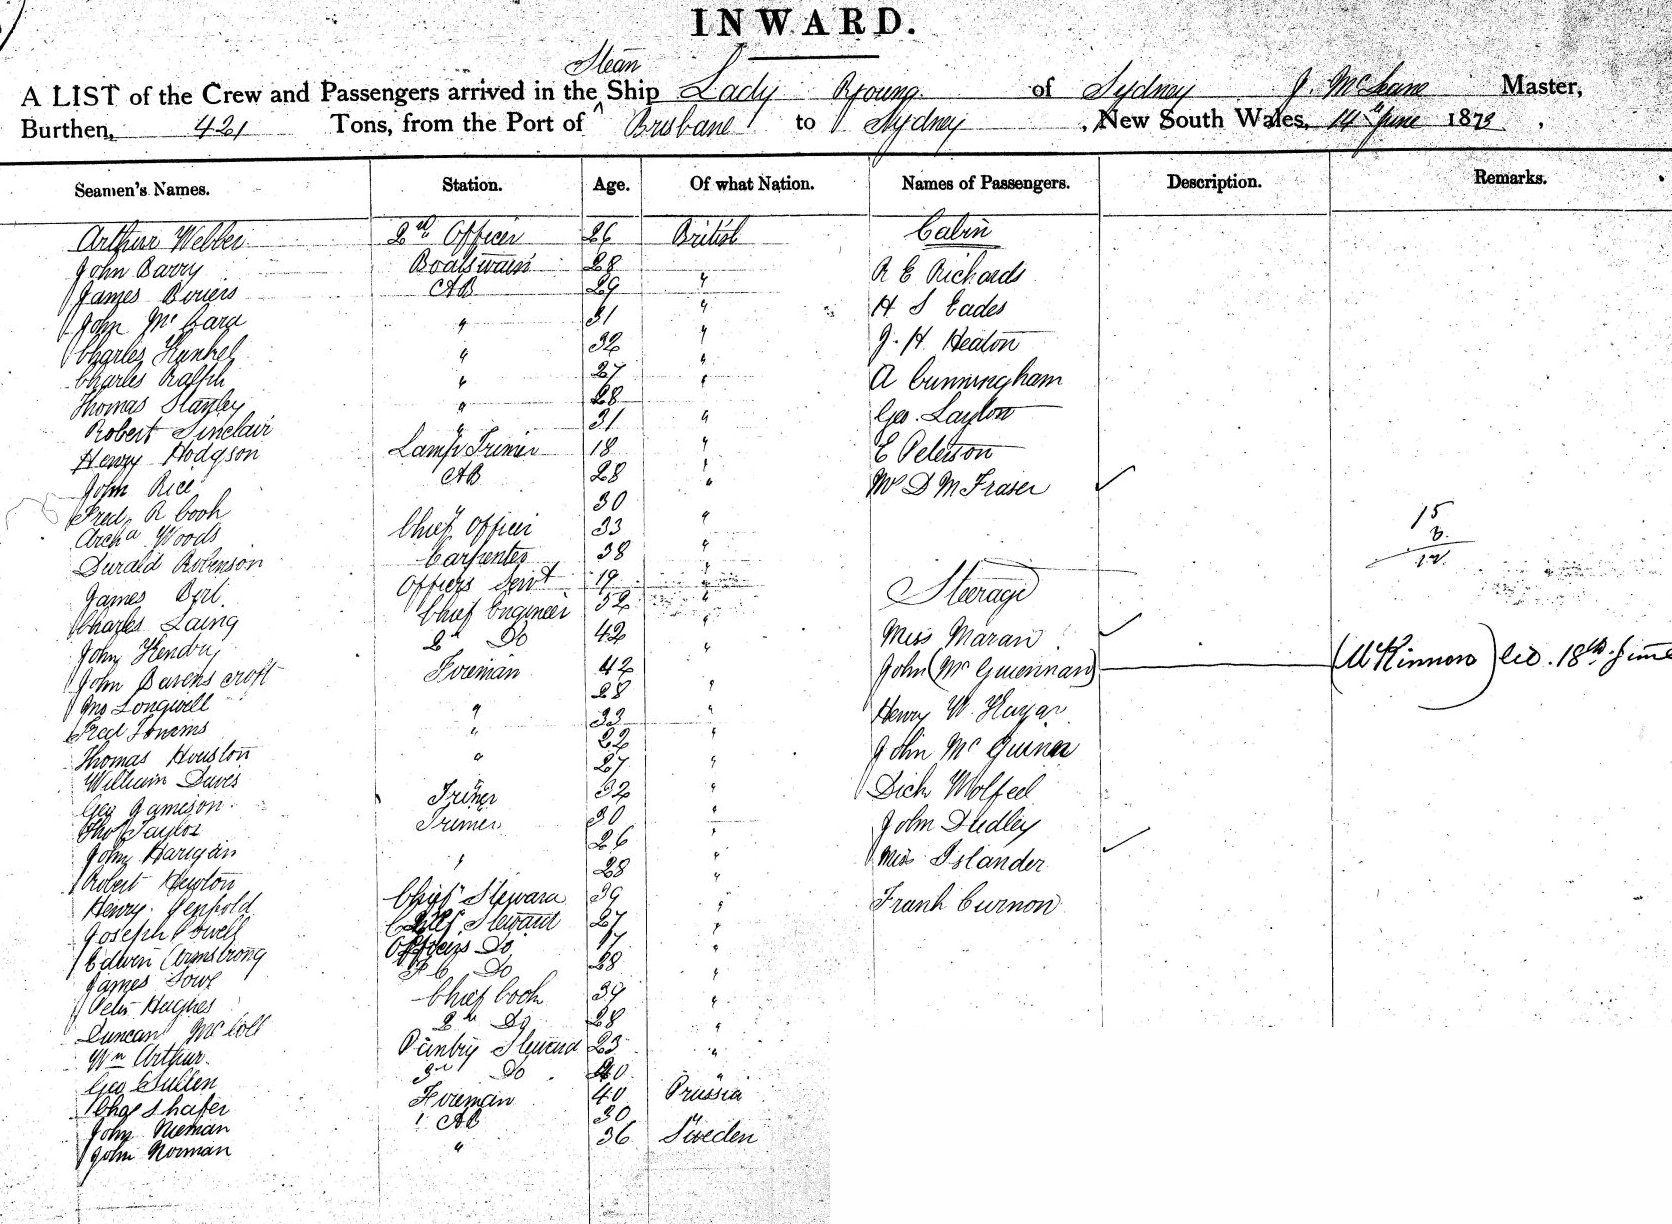 INWARD.
Steam
A LIST of the Crew and Passengers arrived in the Ship Lady Young of Sydney J. McLeane Master,
Burthen, 421 Tons, from the Port of Brisbane to Sydney, New South Wales, 14th June 1873,
Seamen's Names. Station. Age. Of what Nation. Names of Passengers. Description. Remarks.
Arthur Webber 2nd Officer 26 British Cabin
John Barry Boatswain 28 R E Richards
James AB 29 "
John Mc " 31 " H S Eades
Charles Kunkel " 32 " J. H Heaton
Charles Ralph " 27 "
Thomas Stanley " 28 " A Cunningham
Robert Sinclair " 31 " Geo. Layton
Henry Hodgson Lamp Trimer 18 " E Peterson
John Rice AB 28 " D M Fraser
Fred R Cook 30 15
Archd Woods Chief Officer 33 " 3
Durald Robinson Carpenter 38 " 12
James Officers Servt 19 " Steerage
Charles Laing Chief Engineer 52 "
John Hendry 2nd Do 42 " Miss Maran
John Barenscroft Fireman 42 John (Mc Guennan) (McKinnon) 18th June
Jno Longwell 28 "
Fred Timms " 33 " Henry W
Thomas Houston " 22 " John Mc Guinn
William Davis " 27 "
Geo Jameson Trimer 32 " Dick Wolfeel
Thos Taylor Trimer 30 " John Dudley
John Harigan 26 "
Robert Newton " 28 " Miss Islander
Henry Penfold Chief Steward 39 " Frank Curnon
Joseph Powell Steward 27 "
Edwin Armstrong Officers Do 17 "
James Lowe F C Do 28 "
Peter Hughes Chief Cook 39 "
Duncan McColl 2nd Do 28 "
Wm Arthur Pantry Steward 23 "
Geo Cullen 3rd Do 20 "
Chas Shafer Fireman 40 Prussia
John Nieman AB 30 "
John Norman " 36 Sweden